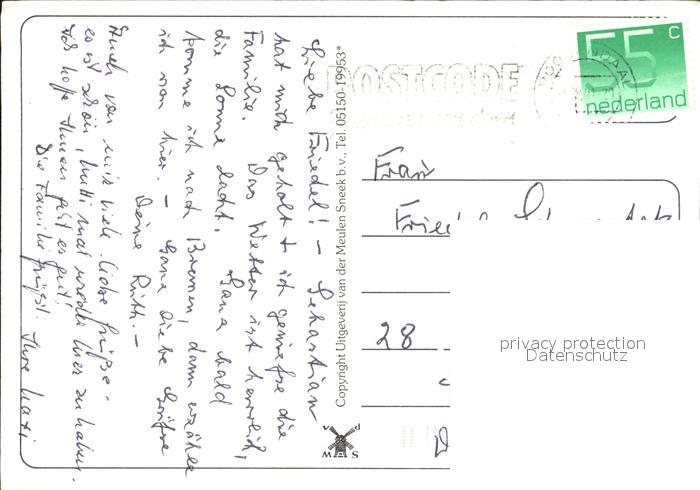 Liebe Friedel! – Sebastian
hat mich geholt + ich genieße die
Familie. Das Wetter ist herrlich,
die Sonne lacht. Ganz bald
komme ich nach Bremen, dann erzähle
ich von hier. – Ganz liebe Grüße
Deine Ruth. –
Auch von mir viele liebe Grüße –
es ist schön, Mutti mal wieder hier zu haben.
Ich hoffe Ihnen geht es gut!
Die Familie grüßt. Ihre
Copyright Uitgeverij van der Meulen Sneek b.v., Tel. 05150-19953*
v d
W M S
POSTCODE
55 c
nederland
Frau
28
privacy protection
Datenschutz